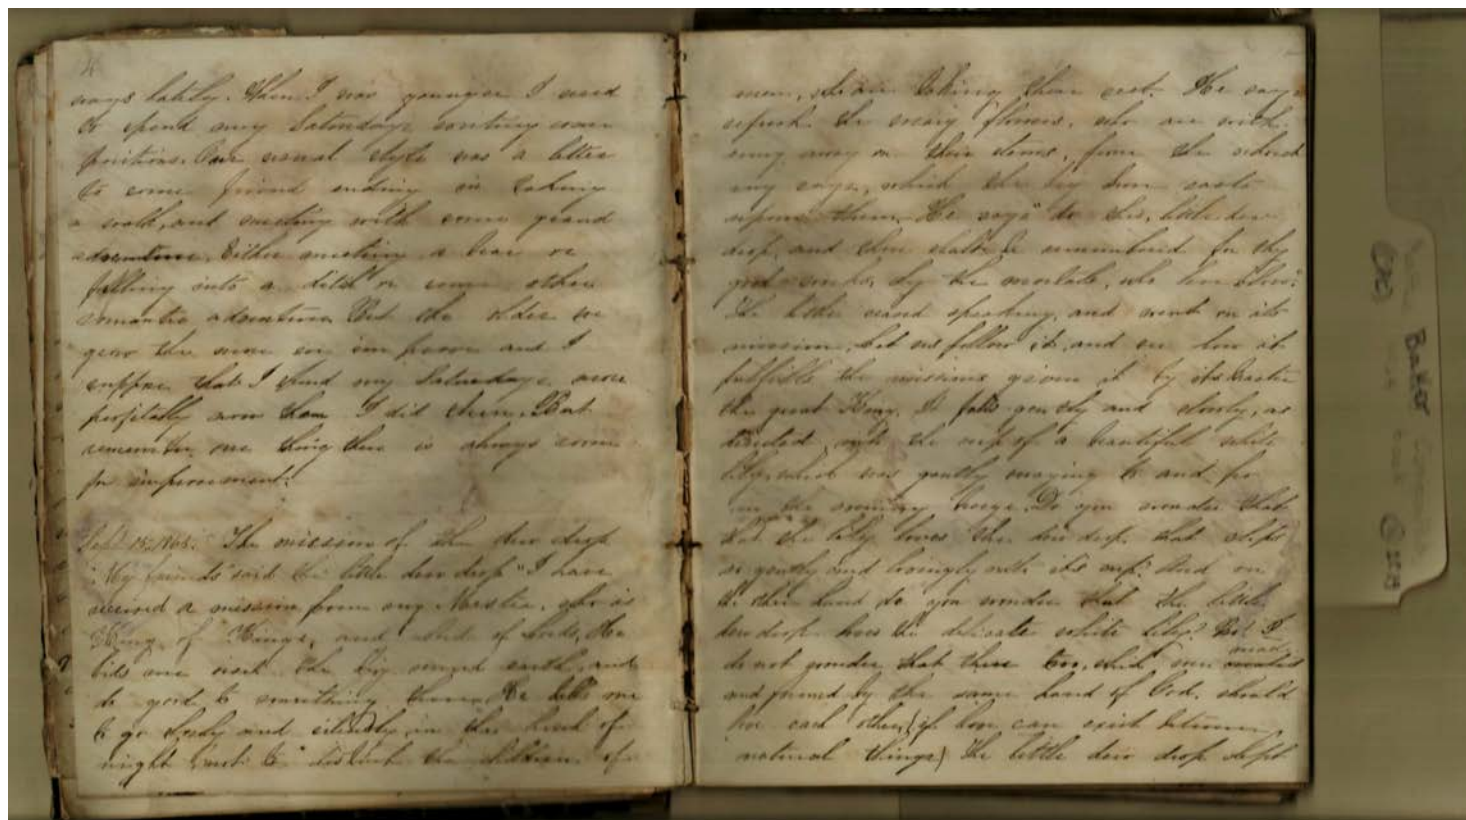 4
ways lately. When I was younger I used
to spend my Saturdays writing com
positions. Our usual style was a letter
to some friend ending in taking
a walk, and meeting with some grand
adventure. Either meeting a bear or
falling into a ditch or some other
romantic adventure. But the older we
grow the more we improve and I
suppose that I spend my Saturdays more
profitably now than I did then. But
remember one thing there is always room
for improvement.
Sept 15, 1865. The mission of the dew drop
"My friends" said the little dew drop "I have
received a mission from my Master, who is
King of Kings, and Lord of Lords, He
bids me visit the big round earth, and
do good to something there. He tells me
to go slowly and silently in the hush of
night not to disturb the children of
men, who are taking their rest. He says
refresh the weary flowers, who are with
ering away on their stems, from the
ing rays, which the big Sun casts
upon them. He says "do this, little dew
drop, and thou shalt be remembered for thy
good works, by the mortals, who live below."
He then ceased speaking, and went on its
mission, let us follow it, and see how it
fulfills the missions given it by its Master
the great King. It falls gently and slowly, as
decided, into the cup of a beautiful white
lily, which was gently swaying to and fro
in the evening breeze. Do you wonder that
that the lily loves the dew drop, that slips
so gently and lovingly into its cup? And on
the other hand do you wonder that the little
dew drop loves the delicate white lily? No! I
do not wonder that these two, which were created
made
and formed by the same hand of God, should
love each other, (if love can exist between
natural things) The little dew drop slept
Baker